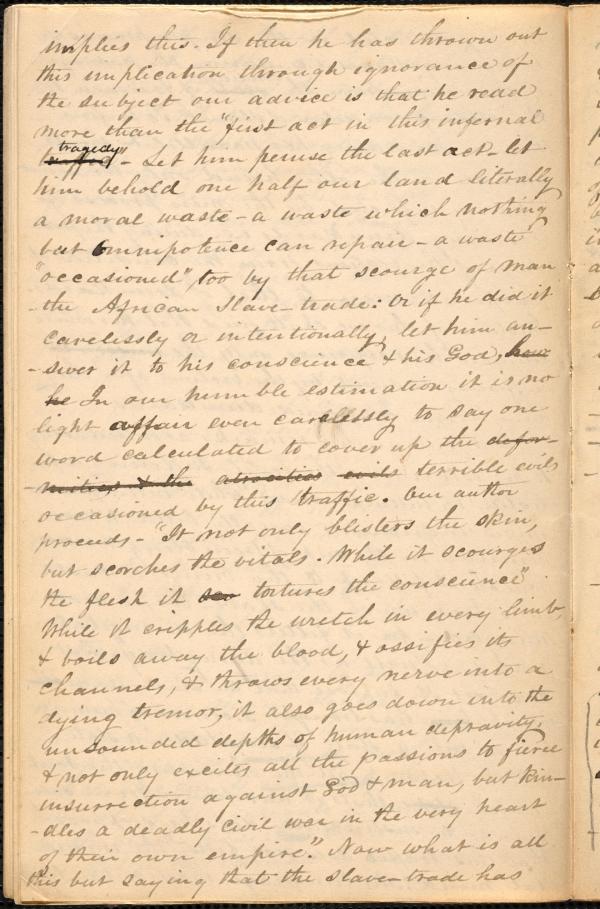 implies this. If then he has thrown out
this implication through ignorance of
the subject our advice is that he read
more than the "first act in this infernal
tragedy
traffic" - Let him peruse the last act - let
him behold one half our land literally
a moral waste - a waste which nothing
but Omnipotence can repair - a waste
"occasioned", too by that scourge of man
- the African Slave-trade: Or if he did it
carelessly or intentionally, let him an-
- swer it to his conscience & his God,
he In our humble estimation it is no
light affair even carelessly to say one
word calculated to cover up the defor-
- mities & the atrocities evils terrible evils
occasioned by this traffic. Our author
proceeds - "It not only blisters the skin,
but scorches the vitals. While it scourges
the flesh it sco tortures the conscience"
While it cripples the wretch in every limb,
& boils away the blood, & ossifies its
channels, & throws every nerve into a
dying tremor, it also goes down into the
unsounded depths of human depravity,
& not only excites all the passions to fierce
insurrection against God & man, but kin-
- dles a deadly civil war in the very heart
of their own empire." Now what is all
this but saying that the slave-trade has